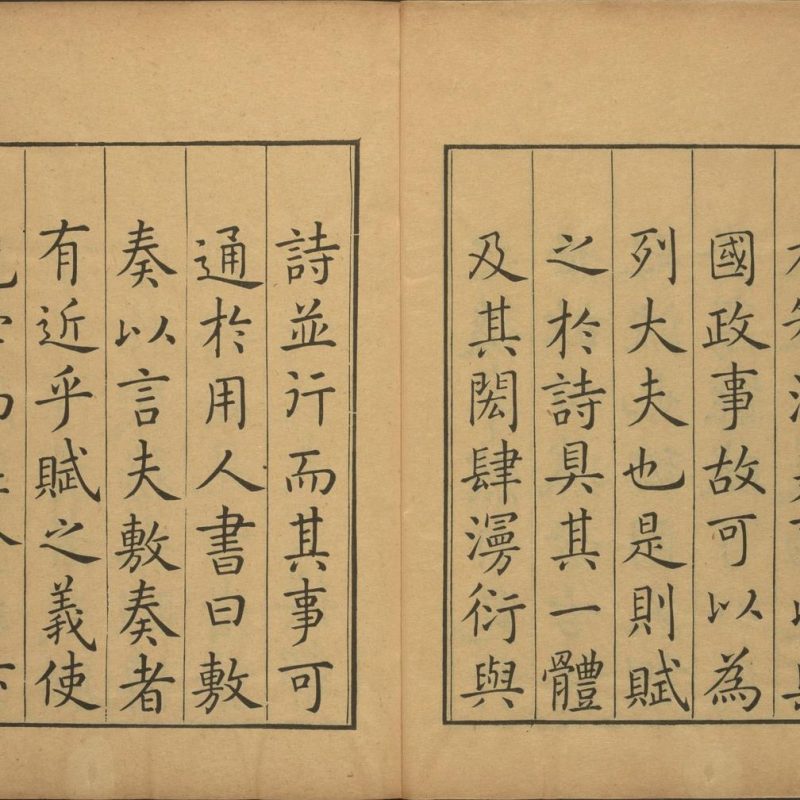 國政事故可以為
列大夫也是則賦
之於詩具其一體
及其閎肆漫衍與
詩並行而其事可
通於用人書曰敷
奏以言夫敷奏者
有近乎賦之義使